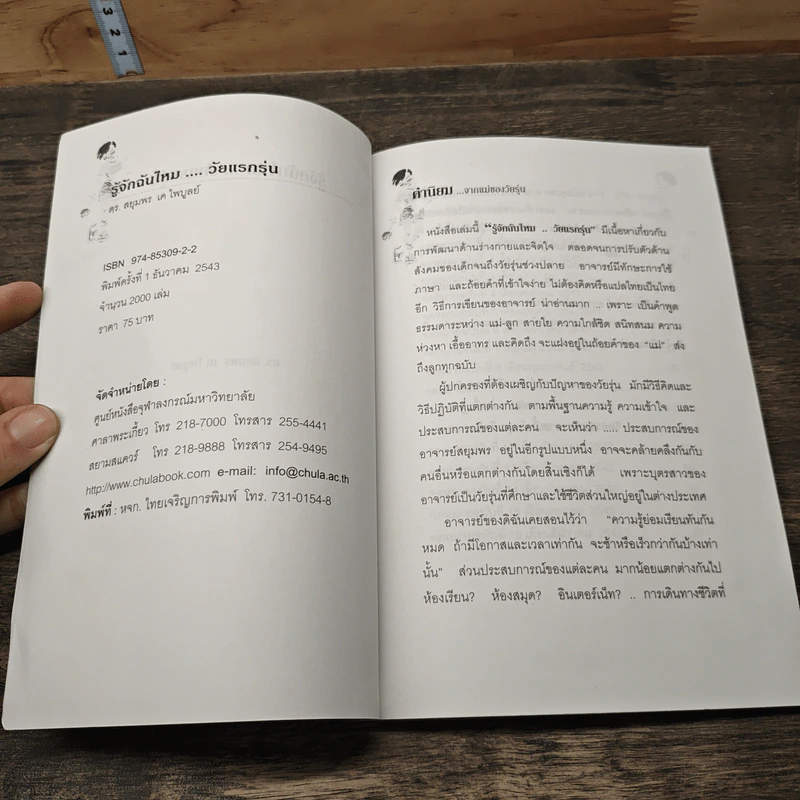 3
2
1
รู้จักฉันไหม .... วัยแรกรุ่น
ดร. สยุมพร เค ไพบูลย์
ISBN 974-85309-2-2
พิมพ์ครั้งที่ 1 ธันวาคม 2543
จำนวน 2000 เล่ม
ราคา 75 บาท
จัดจำหน่ายโดย :
ศูนย์หนังสือจุฬาลงกรณ์มหาวิทยาลัย
ศาลาพระเกี้ยว โทร 218-7000 โทรสาร 255-4441
สยามสแควร์ โทร 218-9888 โทรสาร 254-9495
http://www.chulabook.com e-mail: info@chula.ac.th
พิมพ์ที่ : หจก. ไทยเจริญการพิมพ์ โทร. 731-0154-8
คำนิยม ...จากแม่ของวัยรุ่น
หนังสือเล่มนี้ "รู้จักฉันไหม .. วัยแรกรุ่น" มีเนื้อหาเกี่ยวกับ
การพัฒนาด้านร่างกายและจิตใจ ตลอดจนการปรับตัวด้าน
สังคมของเด็กจนถึงวัยรุ่นช่วงปลาย อาจารย์มีทักษะการใช้
ภาษา และถ้อยคำที่เข้าใจง่าย ไม่ต้องคิดหรือแปลไทยเป็นไทย
อีก วิธีการเขียนของอาจารย์ น่าอ่านมาก .. เพราะ เป็นคำพูด
ธรรมดาระหว่าง แม่-ลูก สายใย ความใกล้ชิด สนิทสนม ความ
ห่วงหา เอื้ออาทร และคิดถึง จะแฝงอยู่ในถ้อยคำของ "แม่" ส่ง
ถึงลูกทุกฉบับ
ผู้ปกครองที่ต้องเผชิญกับปัญหาของวัยรุ่น มักมีวิธีคิดและ
วิธีปฏิบัติที่แตกต่างกัน ตามพื้นฐานความรู้ ความเข้าใจ และ
ประสบการณ์ของแต่ละคน จะเห็นว่า ..... ประสบการณ์ของ
อาจารย์สยุมพร อยู่ในอีกรูปแบบหนึ่ง อาจจะคล้ายคลึงกันกับ
คนอื่นหรือแตกต่างกันโดยสิ้นเชิงก็ได้ เพราะบุตรสาวของ
อาจารย์เป็นวัยรุ่นที่ศึกษาและใช้ชีวิตส่วนใหญ่อยู่ในต่างประเทศ
อาจารย์ของดิฉันเคยสอนไว้ว่า "ความรู้ย่อมเรียนทันกัน
หมด ถ้ามีโอกาสและเวลาเท่ากัน จะช้าหรือเร็วกว่ากันบ้างเท่า
นั้น" ส่วนประสบการณ์ของแต่ละคน มากน้อยแตกต่างกันไป
ห้องเรียน? ห้องสมุด? อินเตอร์เน็ท? .. การเดินทางชีวิตที่